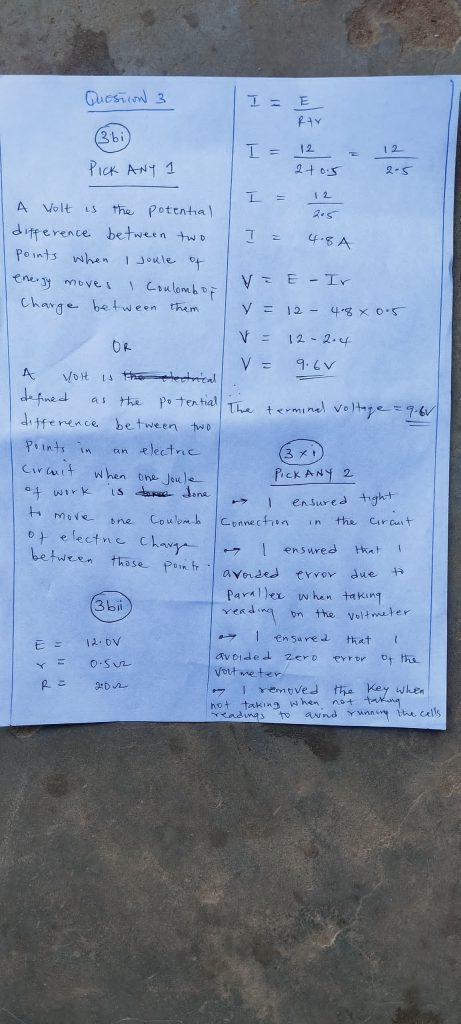 QUESTION 3
3bi
PICK ANY 1
A Volt is the potential
difference between two
points when 1 Joule of
energy moves 1 Coulomb of
Charge between them
OR
A Volt is the electrical
defined as the potential
difference between two
points in an electric
Circuit when one Joule
of work is done
to move one Coulomb
of electric charge
between those points.
3bii
E = 12.0V
r = 0.5Ω
R = 2.0Ω
I = E
R+r
I = 12 = 12
2+0.5 2.5
I = 12
2.5
I = 4.8A
V = E - Ir
V = 12 - 4.8 x 0.5
V = 12 - 2.4
V = 9.6V
∴ The terminal voltage = 9.6V
3xi
PICK ANY 2
→ I ensured tight
Connection in the circuit
→ I ensured that I
avoided error due to
Parallex when taking
reading on the voltmeter
→ I ensured that I
avoided zero error of the
voltmeter
→ I removed the key when
not taking when not taking
readings to avoid running the cells